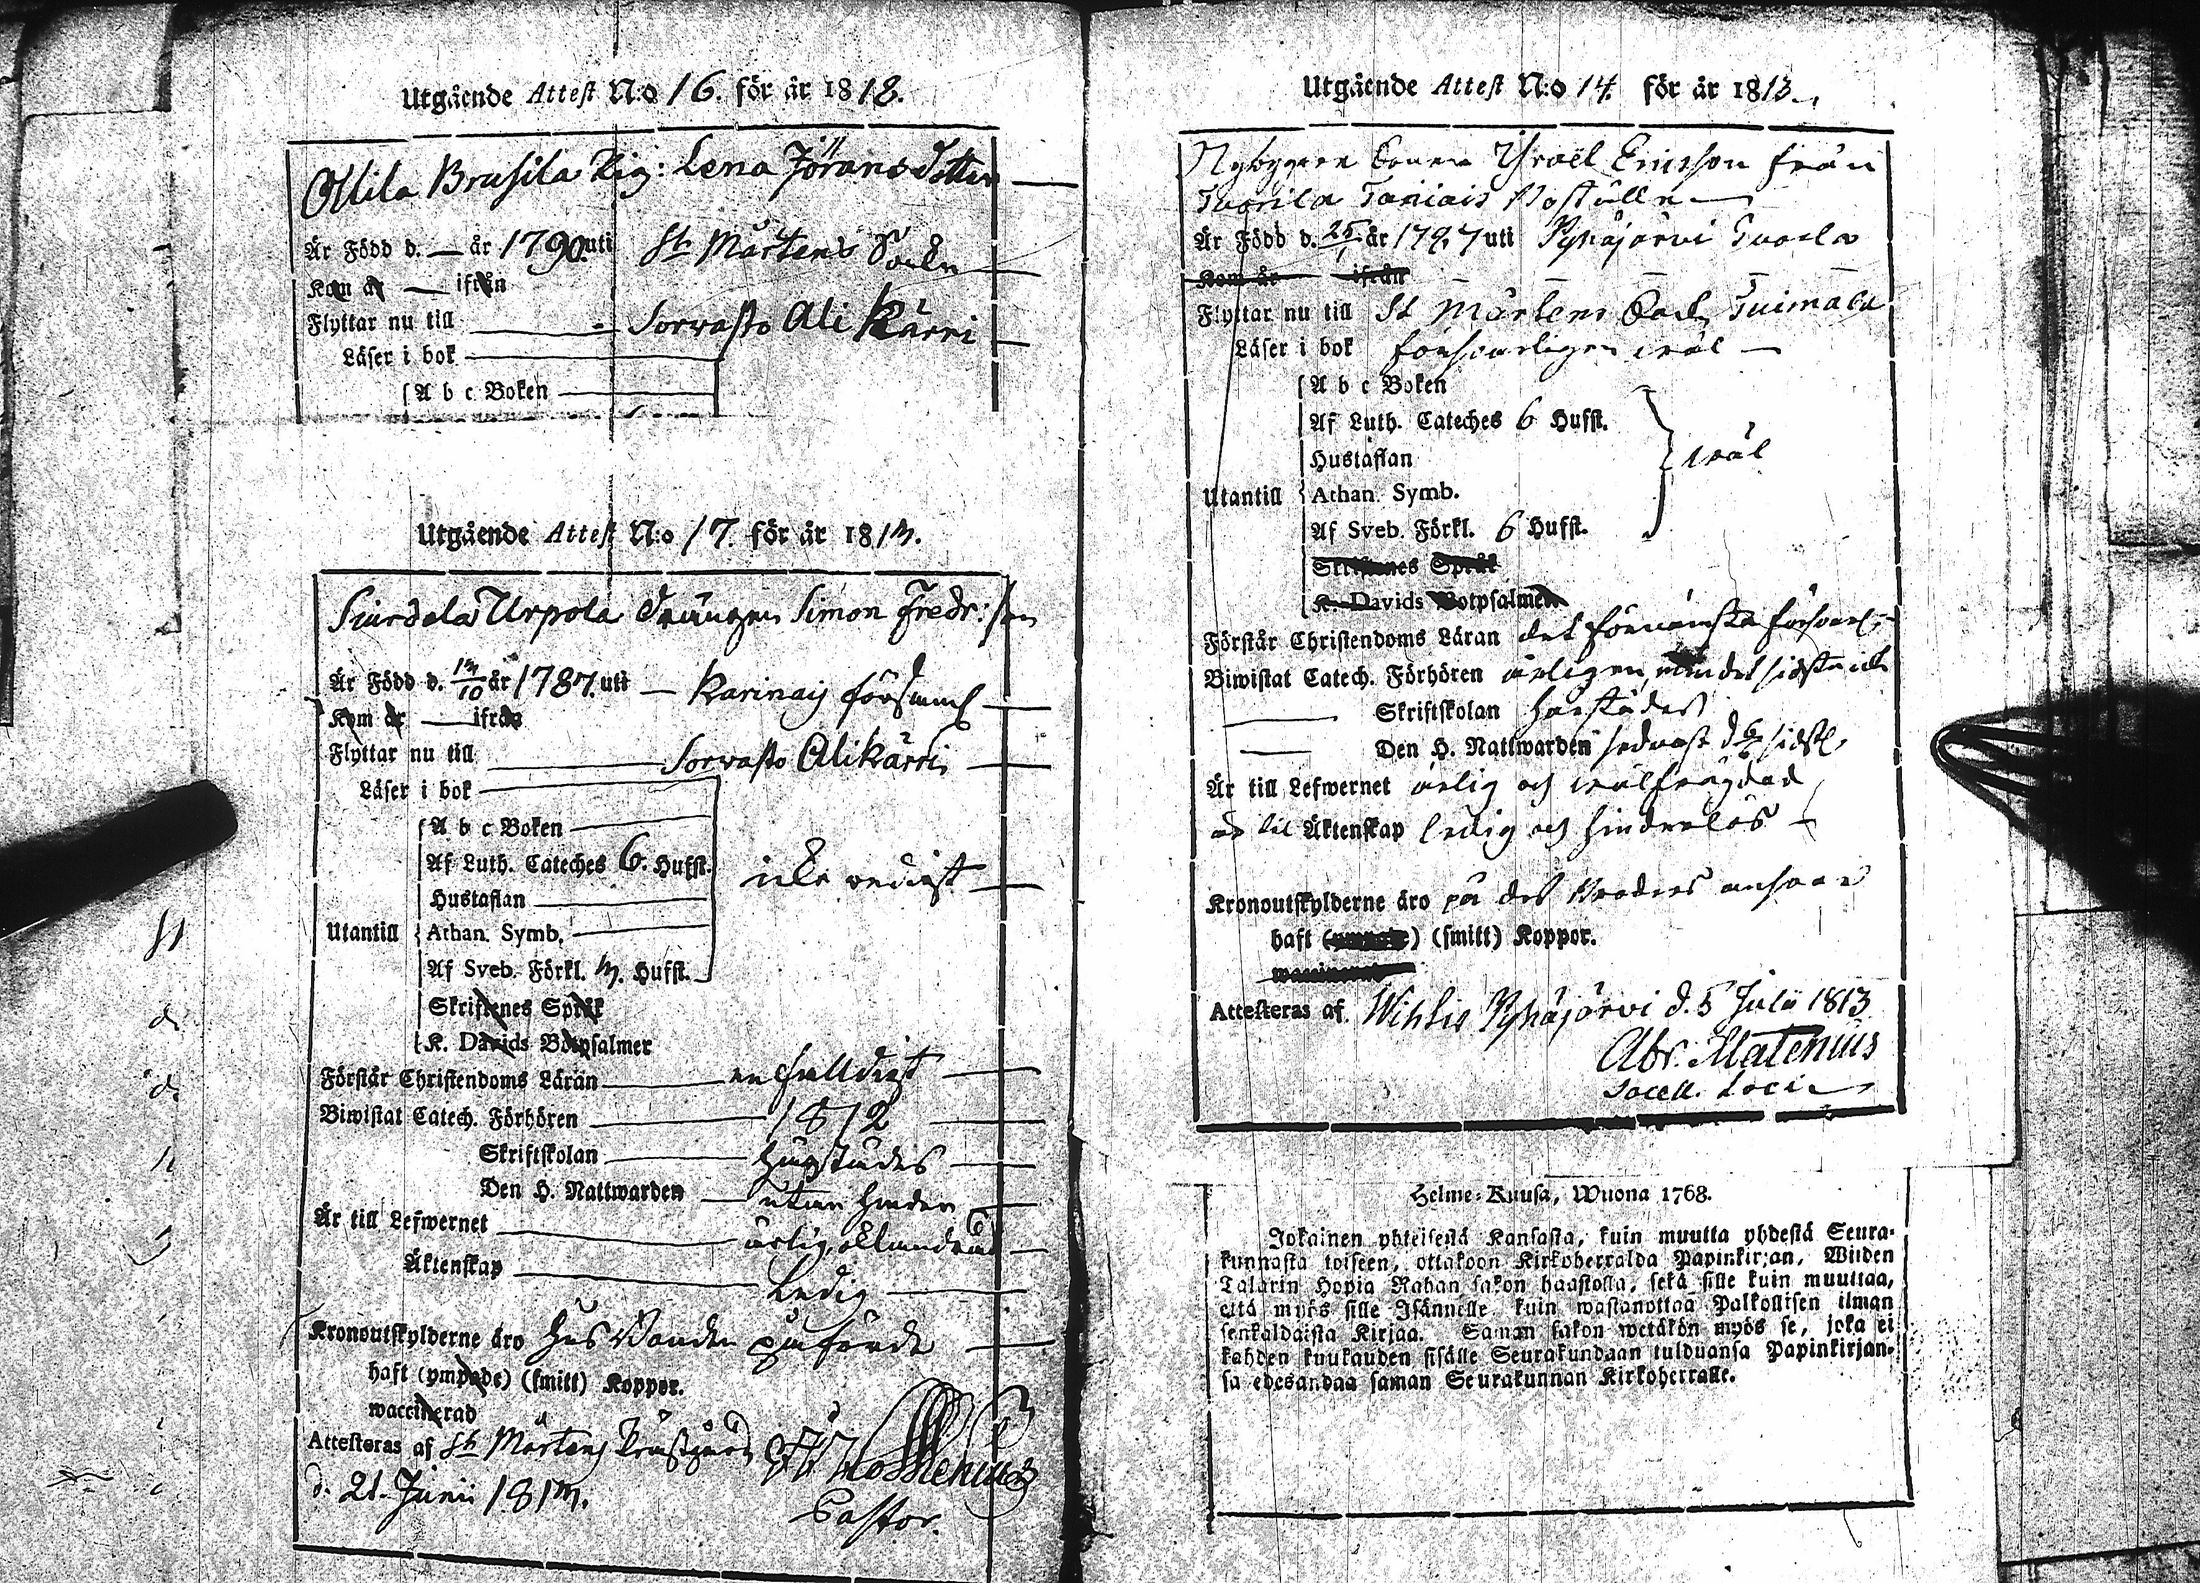 Utgående Attest N:o 16. för år 1818.
Ollila Brusila Pig: Lena Jörans Dotter
Är Född d. — år 1790. uti St Mårtens Sockn
Kom år — ifrån
Flyttar nu till — Sorvasto Ali Kärri
Läser i bok
A b c Boken
Utgående Attest N:o 17. för år 1813.
Urpola Drängen Simon Fredr:son
Är Född d. 13/10 år 1787. uti — Karinais församl
Kom år — ifrån
Flyttar nu till Sorvasto Alikärri
Läser i bok
A b c Boken
Af Luth. Cateches 6. Hufst.
Hustaflan
icke redigt
Utantill Athan. Symb.
Af Sveb. Förkl. 3. Hufst.
Skriftenes Språk
K. Davids Botpsalmer
Förstår Christendoms Läran enfalldigt
Biwistat Catech. Förhören 1812
Skriftskolan
Den H. Nattwarden utan hinder
Är till Lefwernet ärlig
Äktenskap Ledig
Kronoutskylderne äro Husbonden påförde
haft (ympade) (smitt) Koppor.
waccinerad
Attesteras af St Mårtens Prästgård
d. 21. Junii 1813.
Pastor.
Utgående Attest N:o 14. för år 1813.
Israël Ericsson från
Är Född d. 25 år 1797 uti Pyhäjärvi
Kom år ifrån
Flyttar nu till St Mårtens Sock Tuimala
Läser i bok försvarligen wäl
A b c Boken
Af Luth. Cateches 6 Hufst.
Hustaflan
wäl
Utantill Athan. Symb.
Af Sveb. Förkl. 6 Hufst.
Skriftenes Språk
K. Davids Botpsalmer
Förstår Christendoms Läran det förnämsta försvarl.
Biwistat Catech. Förhören årligen
Skriftskolan härstädes
Den H. Nattwarden sednast d. sidstl.
Är till Lefwernet ärlig och wälfrägdad
är til Äktenskap ledig och hinderlös
Kronoutskylderne äro på des
haft (ympade) (smitt) Koppor.
waccinerat
Attesteras af Wihlis Pyhäjärvi d. 5 Julii 1813
Abr: Matenius
Sacell. Loci
Helme-Kuusa, Wuona 1768.
Jokainen yhteisestä Kansasta, kuin muutta yhdestä Seura-
kunnasta toiseen, ottakoon Kirkoherralda Papinkirjan, Wiiden
Talarin Hopia Rahan sakon haastolla, sekä sille kuin muuttaa,
että myös sille Isännelle, kuin wastanottaa Palkollisen ilman
senkaldaista Kirjaa. Saman sakon wetäkön myös se, joka ei
kahden kuukauden sisälle Seurakundaan tulduansa Papinkirjan-
sa edesandaa saman Seurakunnan Kirkoherralle.